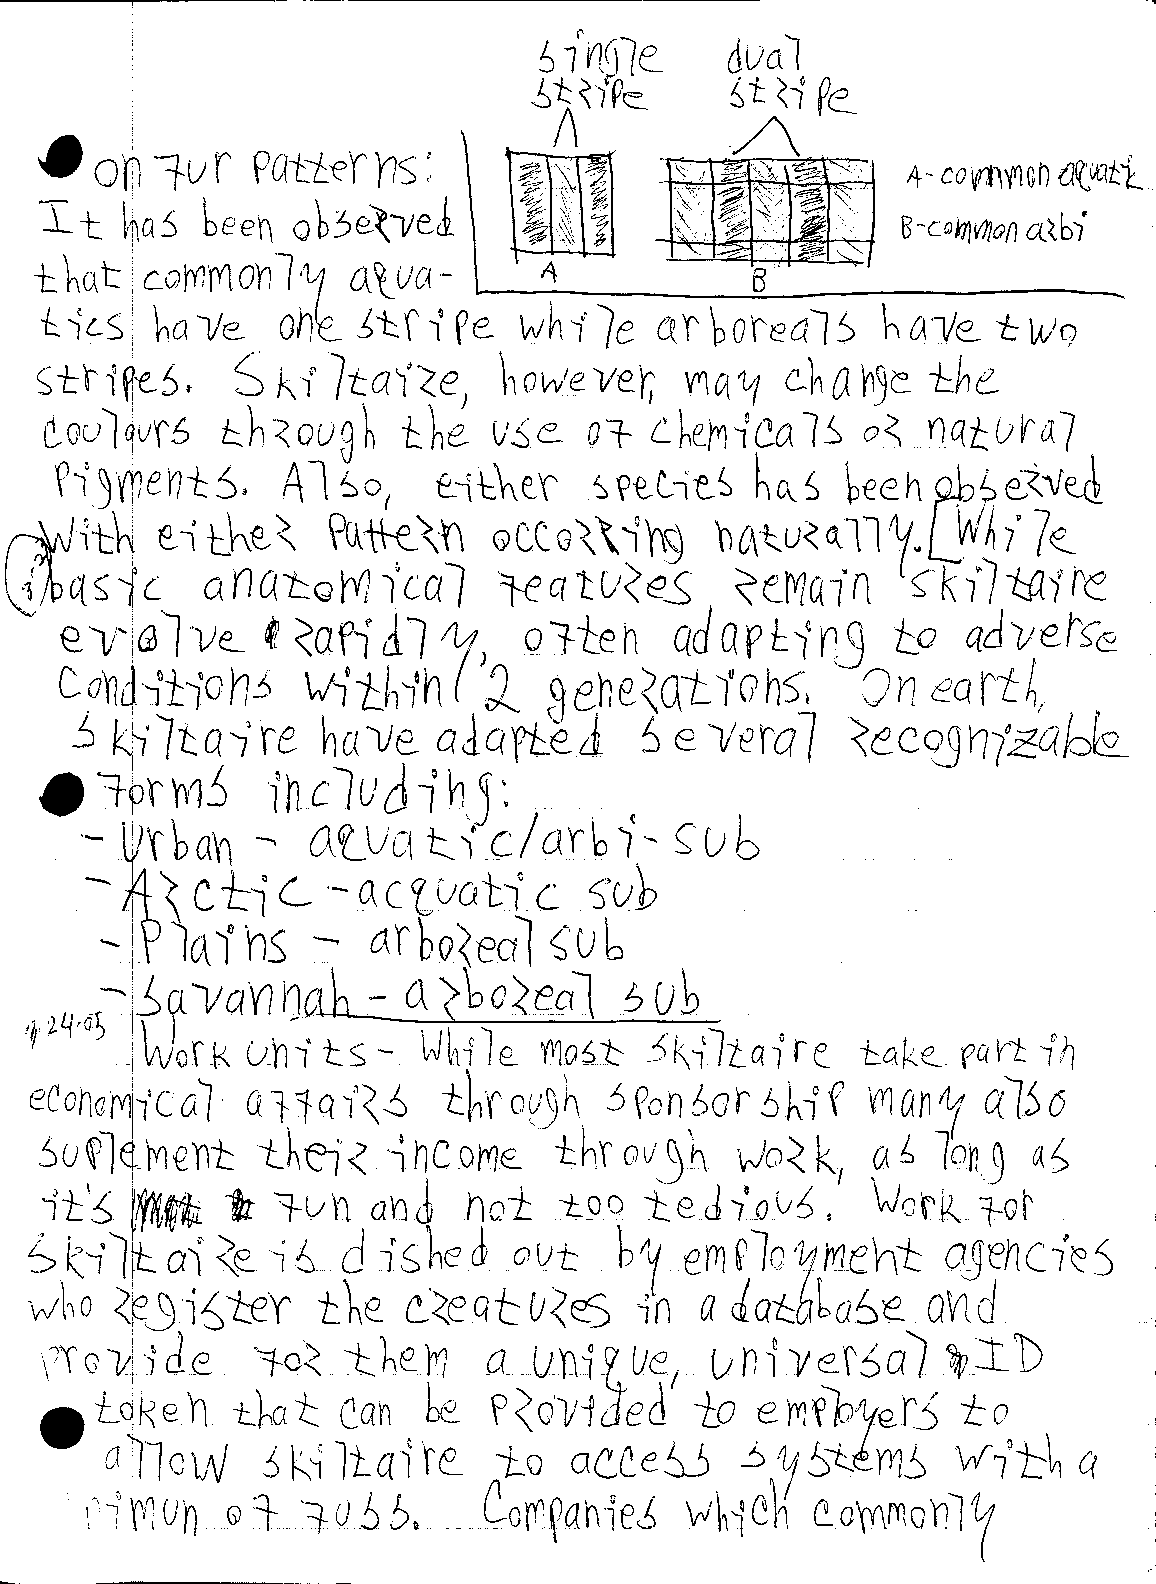 single dual
stripe stripe
on fur patterns:
A-common aquatic
It has been observed
B-common arbi
that commonly aqua-
A B
tics have one stripe while arboreals have two
stripes. Skiltaire, however, may change the
coulours through the use of chemicals or natural
pigments. Also, either species has been observed
with either pattern occorring naturally. [While
basic anatomical features remain skiltaire
evolve rapidly, often adapting to adverse
conditions within 2 generations. On earth,
skiltaire have adapted several recognizable
forms including:
- Urban - aquatic/arbi-sub
- Arctic - acquatic sub
- Plains - arboreal sub
- Savannah - arboreal sub
24-05
Work units - While most skiltaire take part in
economical affairs through sponsorship many also
suplement their income through work, as long as
it's fun and not too tedious. Work for
skiltaire is dished out by employment agencies
who register the creatures in a database and
provide for them a unique, universal ID
token that can be provided to employers to
allow skiltaire to access systems with a
nimun of fuss. Companies which commonly